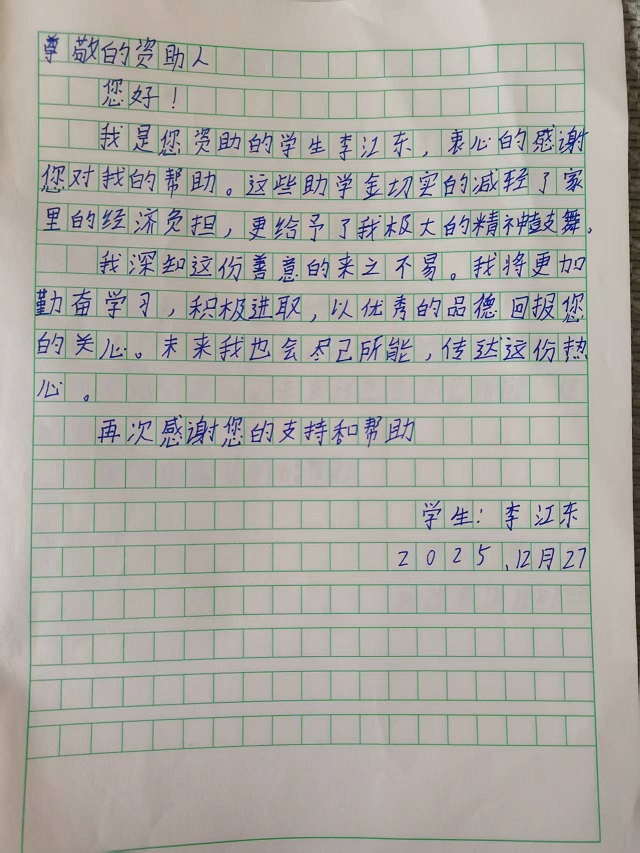 尊敬的资助人
您好！
我是您资助的学生李江东，衷心的感谢
您对我的帮助。这些助学金切实的减轻了家
里的经济负担，更给予了我极大的精神鼓舞。
我深知这份善意的来之不易。我将更加
勤奋学习，积极进取，以优秀的品德回报您
的关心。未来我也会尽己所能，传达这份热
心。
再次感谢您的支持和帮助
学生：李江东
2025.12月27